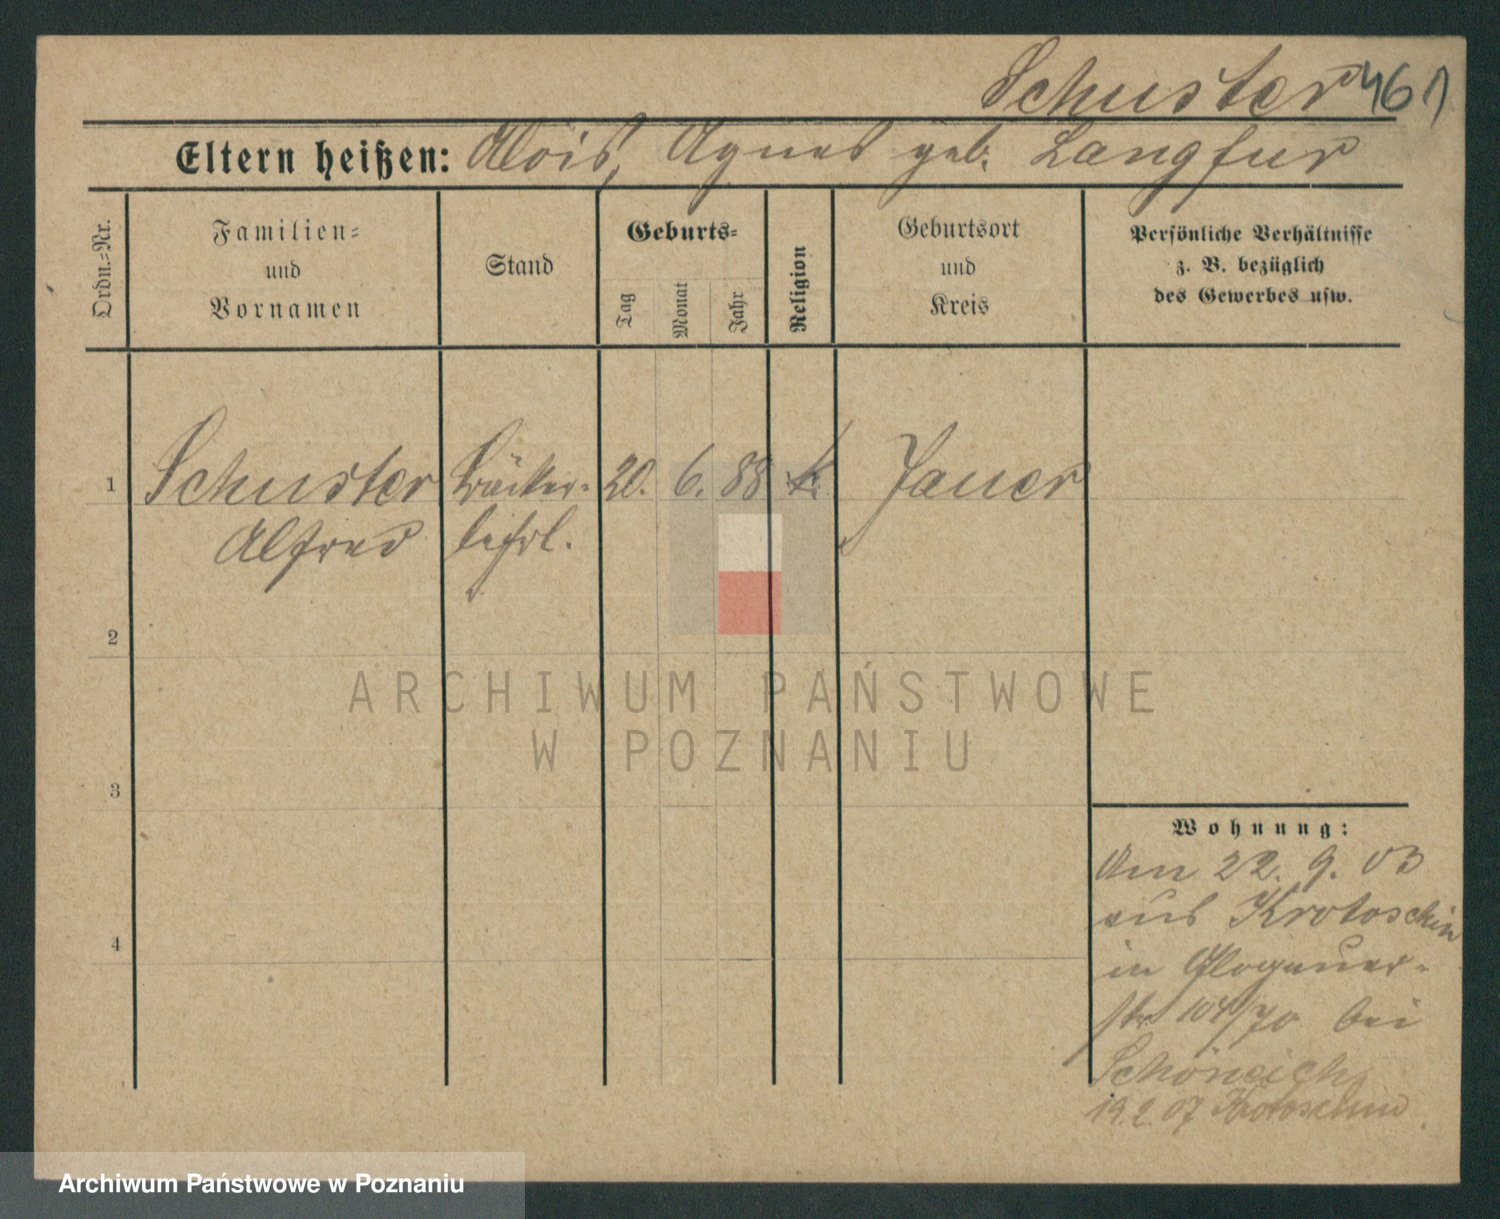 Schuster 461
Eltern heißen: Alois, Agnes geb. Langfur
Ordn.=Nr.
Familien=
und
Vornamen
Stand
Geburts=
Tag
Monat
Jahr
Religion
Geburtsort
und
Kreis
Persönliche Verhältnisse
z. B. bezüglich
des Gewerbes usw.
1 Schuster Bäcker- 20. 6. 88 k. Jauer
Alfred lehrl.
2
3
4
Wohnung:
Am 22. 9. 03
aus Krotoschin
in Glogauer-
str 104/70 bei
Schöneich
19.2.07 Krotoschin
ARCHIWUM PAŃSTWOWE
W POZNANIU
Archiwum Państwowe w Poznaniu